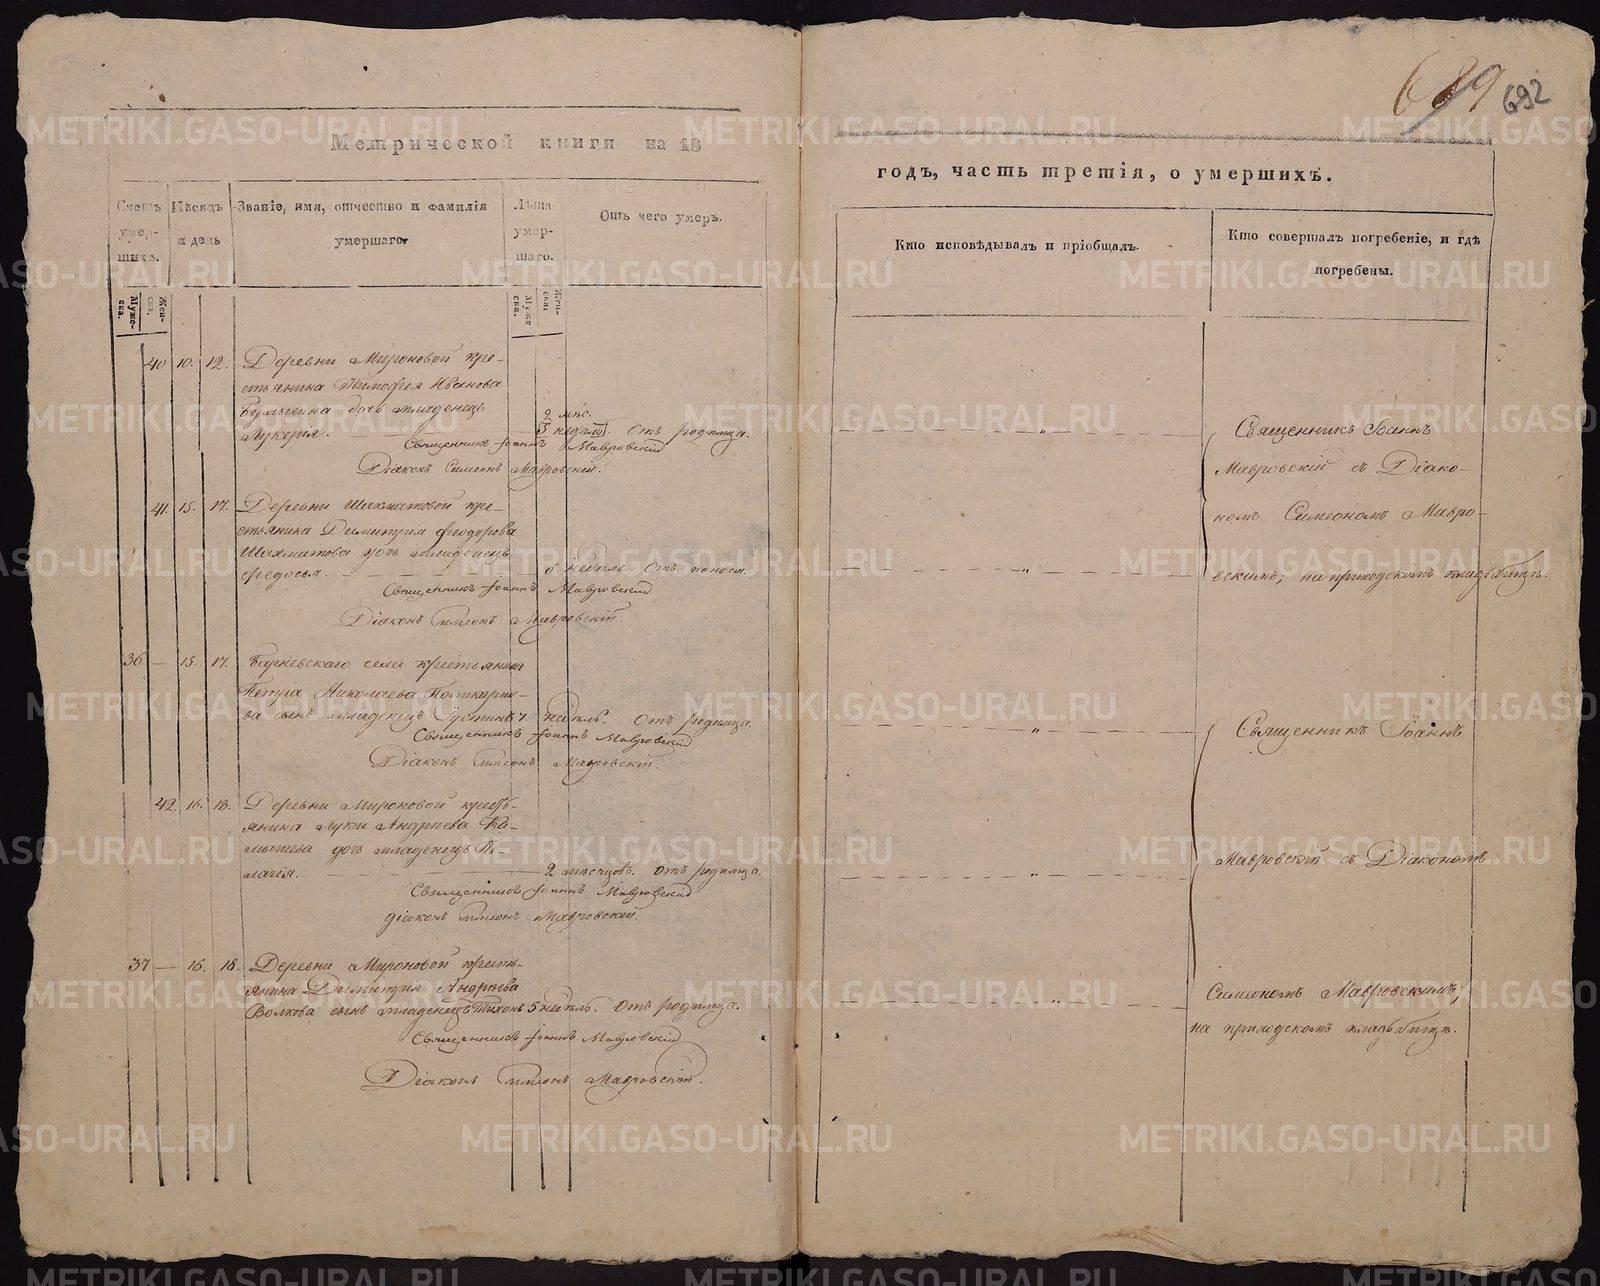 689 692
Метрической книги на 18
годъ, часть третія, о умершихъ.
Счетъ умер-шихъ.
Муже-ска.
Жен-ска.
Мѣсяцъ и день
Званіе, имя, отчество и фамилія умершаго
Лѣта умер-шаго.
Муже ска.
Жен-ски
Отъ чего умеръ.
Кто исповѣдывалъ и пріобщалъ.
Кто совершалъ погребеніе, и гдѣ погребены.
40 10. 12. Деревни Мироновой кре-
стьянина Тимофея Иванова
дочь младенецъ 2 мѣс.
Лукерья. Отъ родимца.
Священникъ Іоаннъ Мавровскій
Діаконъ Симеонъ Мавровскій.
41. 15. 17. Деревни Шахматовой кре-
стьянина Димитрія Феодорова
Шахматова дочь младенецъ
Федосья. 6 недѣль. Отъ поноса.
Священникъ Іоаннъ Мавровскій
Діаконъ Симеонъ Мавровскій.
36 — 15. 17. села крестьянина
Петра Николаева
ва сынъ младенецъ Іустинъ 7 недѣль. Отъ родимца.
Священникъ Іоаннъ Мавровскій
Діаконъ Симеонъ Мавровскій.
42. 16. 18. Деревни Мироновой кресть-
янина Луки Андреева Ка-
мышева дочь младенецъ Пе-
лагія. 2 мѣсяцовъ. Отъ родимца.
Священникъ Іоаннъ Мавровскій
Діаконъ Симеонъ Мавровскій.
37 — 16. 18. Деревни Мироновой кресть-
янина Димитрія Андреева
Волкова сынъ младенецъ Тихонъ 5 недѣль. Отъ родимца.
Священникъ Іоаннъ Мавровскій
Діаконъ Симеонъ Мавровскій.
Священникъ Іоаннъ
Мавровскій съ Діако-
номъ Симеономъ Мавро-
вскимъ; на приходскомъ кладбищѣ.
Священникъ Іоаннъ
Мавровскій съ Діакономъ
Симеономъ Мавровскимъ;
на приходскомъ кладбищѣ.
METRIKI.GASO-URAL.RU